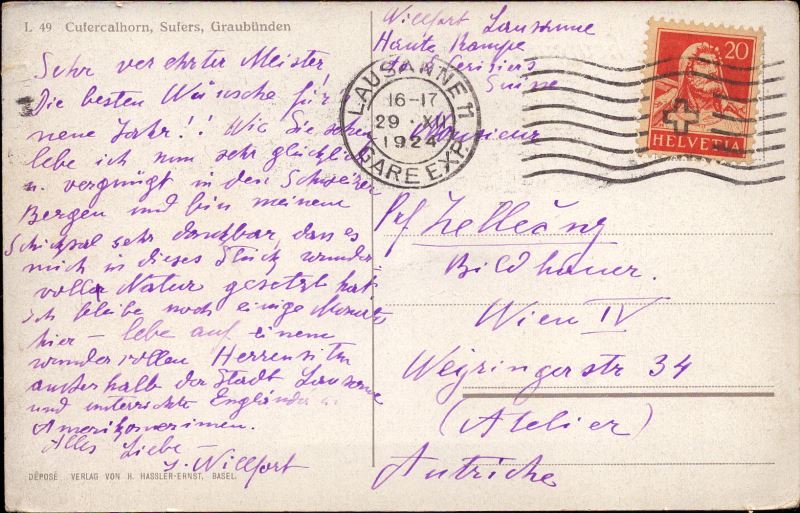 L 49 Cufercalhorn, Sufers, Graubünden
Sehr verehrter Meister!
Die besten Wünsche für
neue Jahr!! Wie Sie sehen
lebe ich nun sehr glücklich
u. vergnügt in den Schweizer
Bergen und bin meinem
Schicksal sehr dankbar, dass es
mich in dieses Stück wunder
volle Natur gesetzt hat.
Ich bleibe noch einige Monate
hier – lebe auf einem
wundervollen Herrensitz
außerhalb der Stadt Lausanne
und unterrichte Engländer u.
Amerikanerinnen.
Alles Liebe
J. Willfort
DÉPOSÉ VERLAG VON H. HASSLER-ERNST, BASEL.
Willfort Lausanne
Haute Rampe
Cerisiers
Suisse
LAUSANNE 11
16-17
29. XII
1924
GARE EXP.
20
HELVETIA
Monsieur
Prof
Bildhauer.
Wien IV
Weyringerstr 34
(Atelier)
Autriche